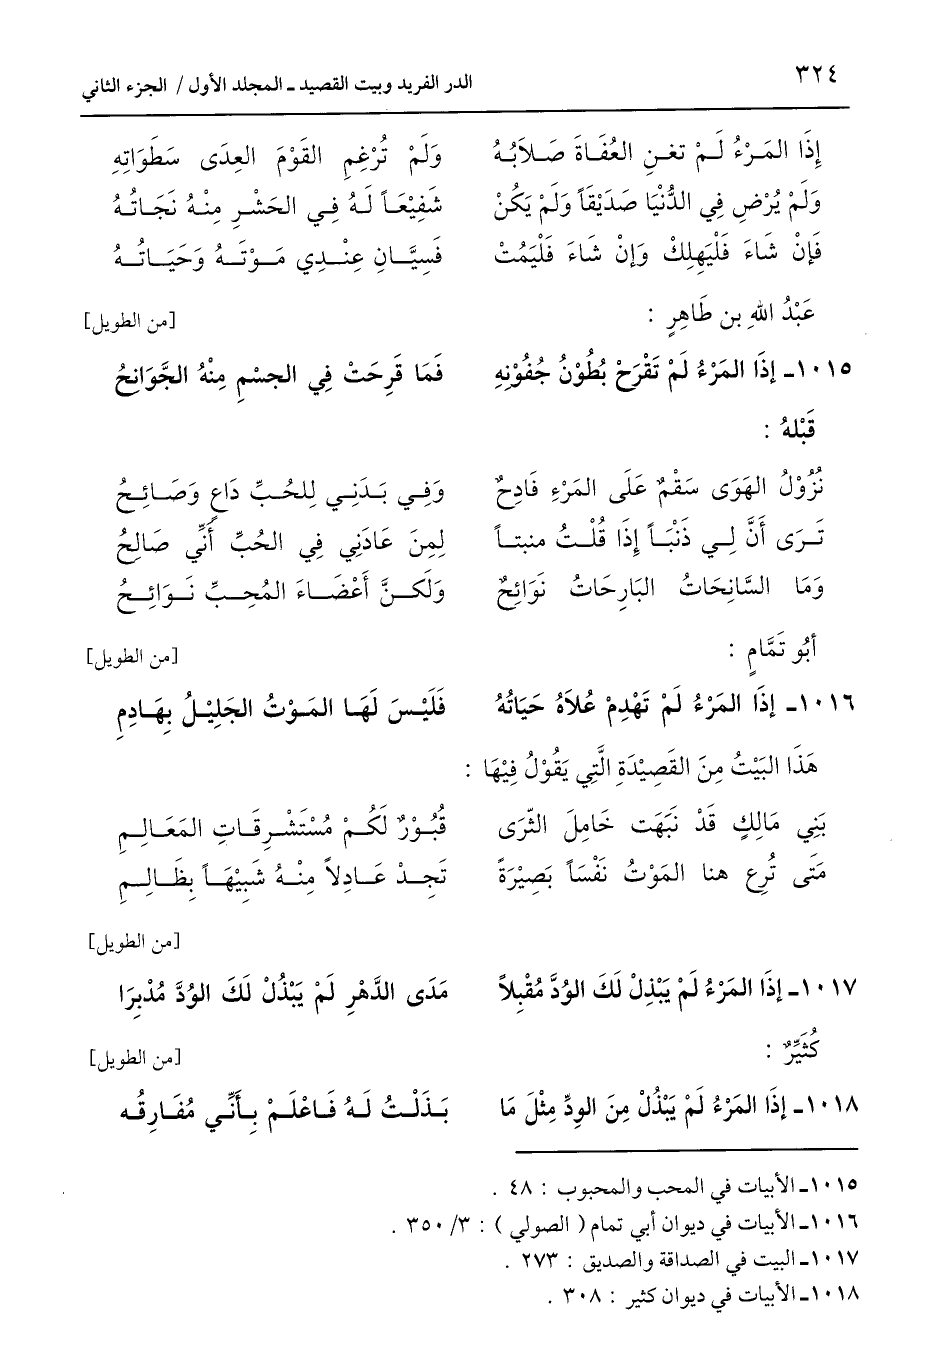 ٣٢٤ الدر الفريد وبيت القصيد ـ المجلد الأول / الجزء الثاني
إِذَا المَرْءُ لَمْ تغنِ العُفَاةَ صَلَابُهُ وَلَمْ تُرْغِمِ القَوْمَ العِدَى سَطَوَاتِهِ
وَلَمْ يُرْضِ فِي الدُّنْيَا صَدِيْقَاً وَلَمْ يَكُنْ شَفِيْعَاً لَهُ فِي الحَشْرِ مِنْهُ نَجَاتُهُ
فَإِنْ شَاءَ فَلْيَهلِكْ وَإِنْ شَاءَ فَلْيَمُتْ فَسِيَّانِ عِنْدِي مَوْتَهُ وَحَيَاتُهُ
عَبْدُ اللهِ بن طَاهِرٍ : [من الطويل]
١٠١٥ـ إِذَا المَرْءُ لَمْ تَقْرَحْ بُطُوْنُ جُفُوْنِهِ فَمَا قَرِحَتْ فِي الجسْمِ مِنْهُ الجَّوَانِحُ
قَبْلهُ :
نُزُوْلُ الهَوَى سَقْمٌ عَلَى المَرْءِ فَادِحٌ وَفِي بَدَنِي لِلحُبِّ دَاعٍ وَصَائِحُ
تَرَى أَنَّ لِي ذَنْبَاً إِذَا قُلْتُ منبتاً لِمِنَ عَادَنِي فِي الحُبِّ أَنِّي صَالِحُ
وَمَا السَّانِحَاتُ البَارِحَاتُ نَوَائِحٌ وَلَكنَّ أَعْضَاءَ المُحِبِّ نَوَائِحُ
أَبُو تَمَّامٍ : [من الطويل]
١٠١٦ـ إِذَا المَرْءُ لَمْ تَهْدِمْ عُلَاهُ حَيَاتُهُ فَلَيْسَ لَهَا المَوْتُ الجَلِيْلُ بِهَادِمِ
هَذَا البَيْتُ مِنَ القَصِيْدَةِ الَّتِي يَقُوْلُ فِيْهَا :
بَنِي مَالِكٍ قَدْ نَبَّهَت خَامِلَ الثَّرَى قُبُوْرٌ لَكُمْ مُسْتَشْرِقَاتِ المَعَالِمِ
مَتَى تُرِع هنا المَوْتُ نَفْسَاً بَصِيْرَةً تَجِدْ عَادِلاً مِنْهُ شَبِيْهَاً بِظَالِمِ
[من الطويل]
١٠١٧ـ إِذَا المَرْءُ لَمْ يَبْذِلْ لَكَ الوُدَّ مُقْبِلاً مَدَى الدَّهْرِ لَمْ يَبْذُلْ لَكَ الوُدَّ مُدْبِرَا
كُثَيِّرٌ : [من الطويل]
١٠١٨ـ إِذَا المَرْءُ لَمْ يَبْذُلْ مِنَ الودِّ مِثْلَ مَا بَذَلْتُ لَهُ فَاعْلَمْ بِأَنِّي مُفَارِقُه
١٠١٥ـ الأبيات في المحب والمحبوب : ٤٨ .
١٠١٦ـ الأبيات في ديوان أبي تمام ( الصولي ) : ٣/ ٣٥٠ .
١٠١٧ـ البيت في الصداقة والصديق : ٢٧٣ .
١٠١٨ـ الأبيات في ديوان كثير : ٣٠٨ .